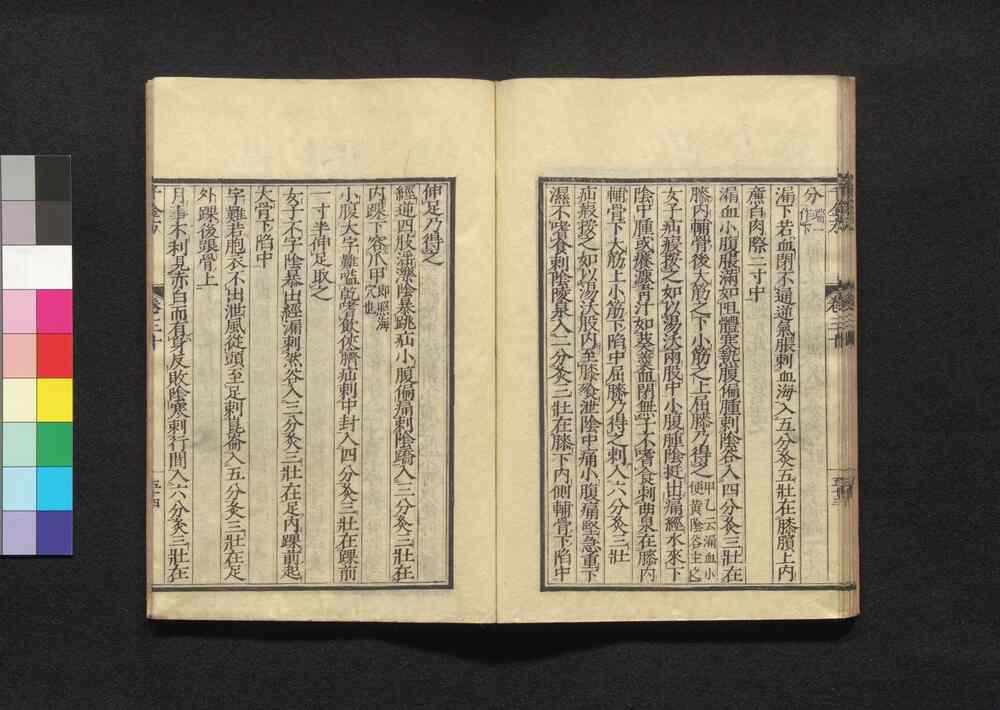 分 端一作下
漏下若血閉不通逆氣脹刺血海入五分灸五壯在膝臏上內
廉白肉際二寸中
漏血小腹脹滿如阻體寒熱腹偏腫刺陰谷入四分灸三壯在
膝內輔骨後大筋之下小筋之上屈膝乃得之 甲乙云漏血小便黃陰谷主之
女子疝瘕按之如以湯沃兩股中小腹腫陰挺出痛經水來下
陰中腫或癢漉青汁如葵羹血閉無子不嗜食刺曲泉在膝內
輔骨下大筋上小筋下陷中屈膝乃得之刺入六分灸三壯
疝瘕按之如以湯沃股內至膝飧泄陰中痛小腹痛堅急重下
濕不嗜食刺陰陵泉入二分灸三壯在膝下內側輔骨下陷中
伸足乃得之
經逆四肢淫濼陰暴跳疝小腹偏痛刺陰蹻入三分灸三壯在
內踝下容爪甲 即照海穴也
小腹大字難嗌乾嗜飲俠臍疝刺中封入四分灸三壯在踝前
一寸半伸足取之
女子不字陰暴出經漏刺然谷入三分灸三壯在足內踝前起
大骨下陷中
字難若胞衣不出泄風從頭至足刺崑崙入五分灸三壯在足
外踝後跟骨上
月事不利見赤白而有身反敗陰寒刺行間入六分灸三壯在
卷三十
五十四